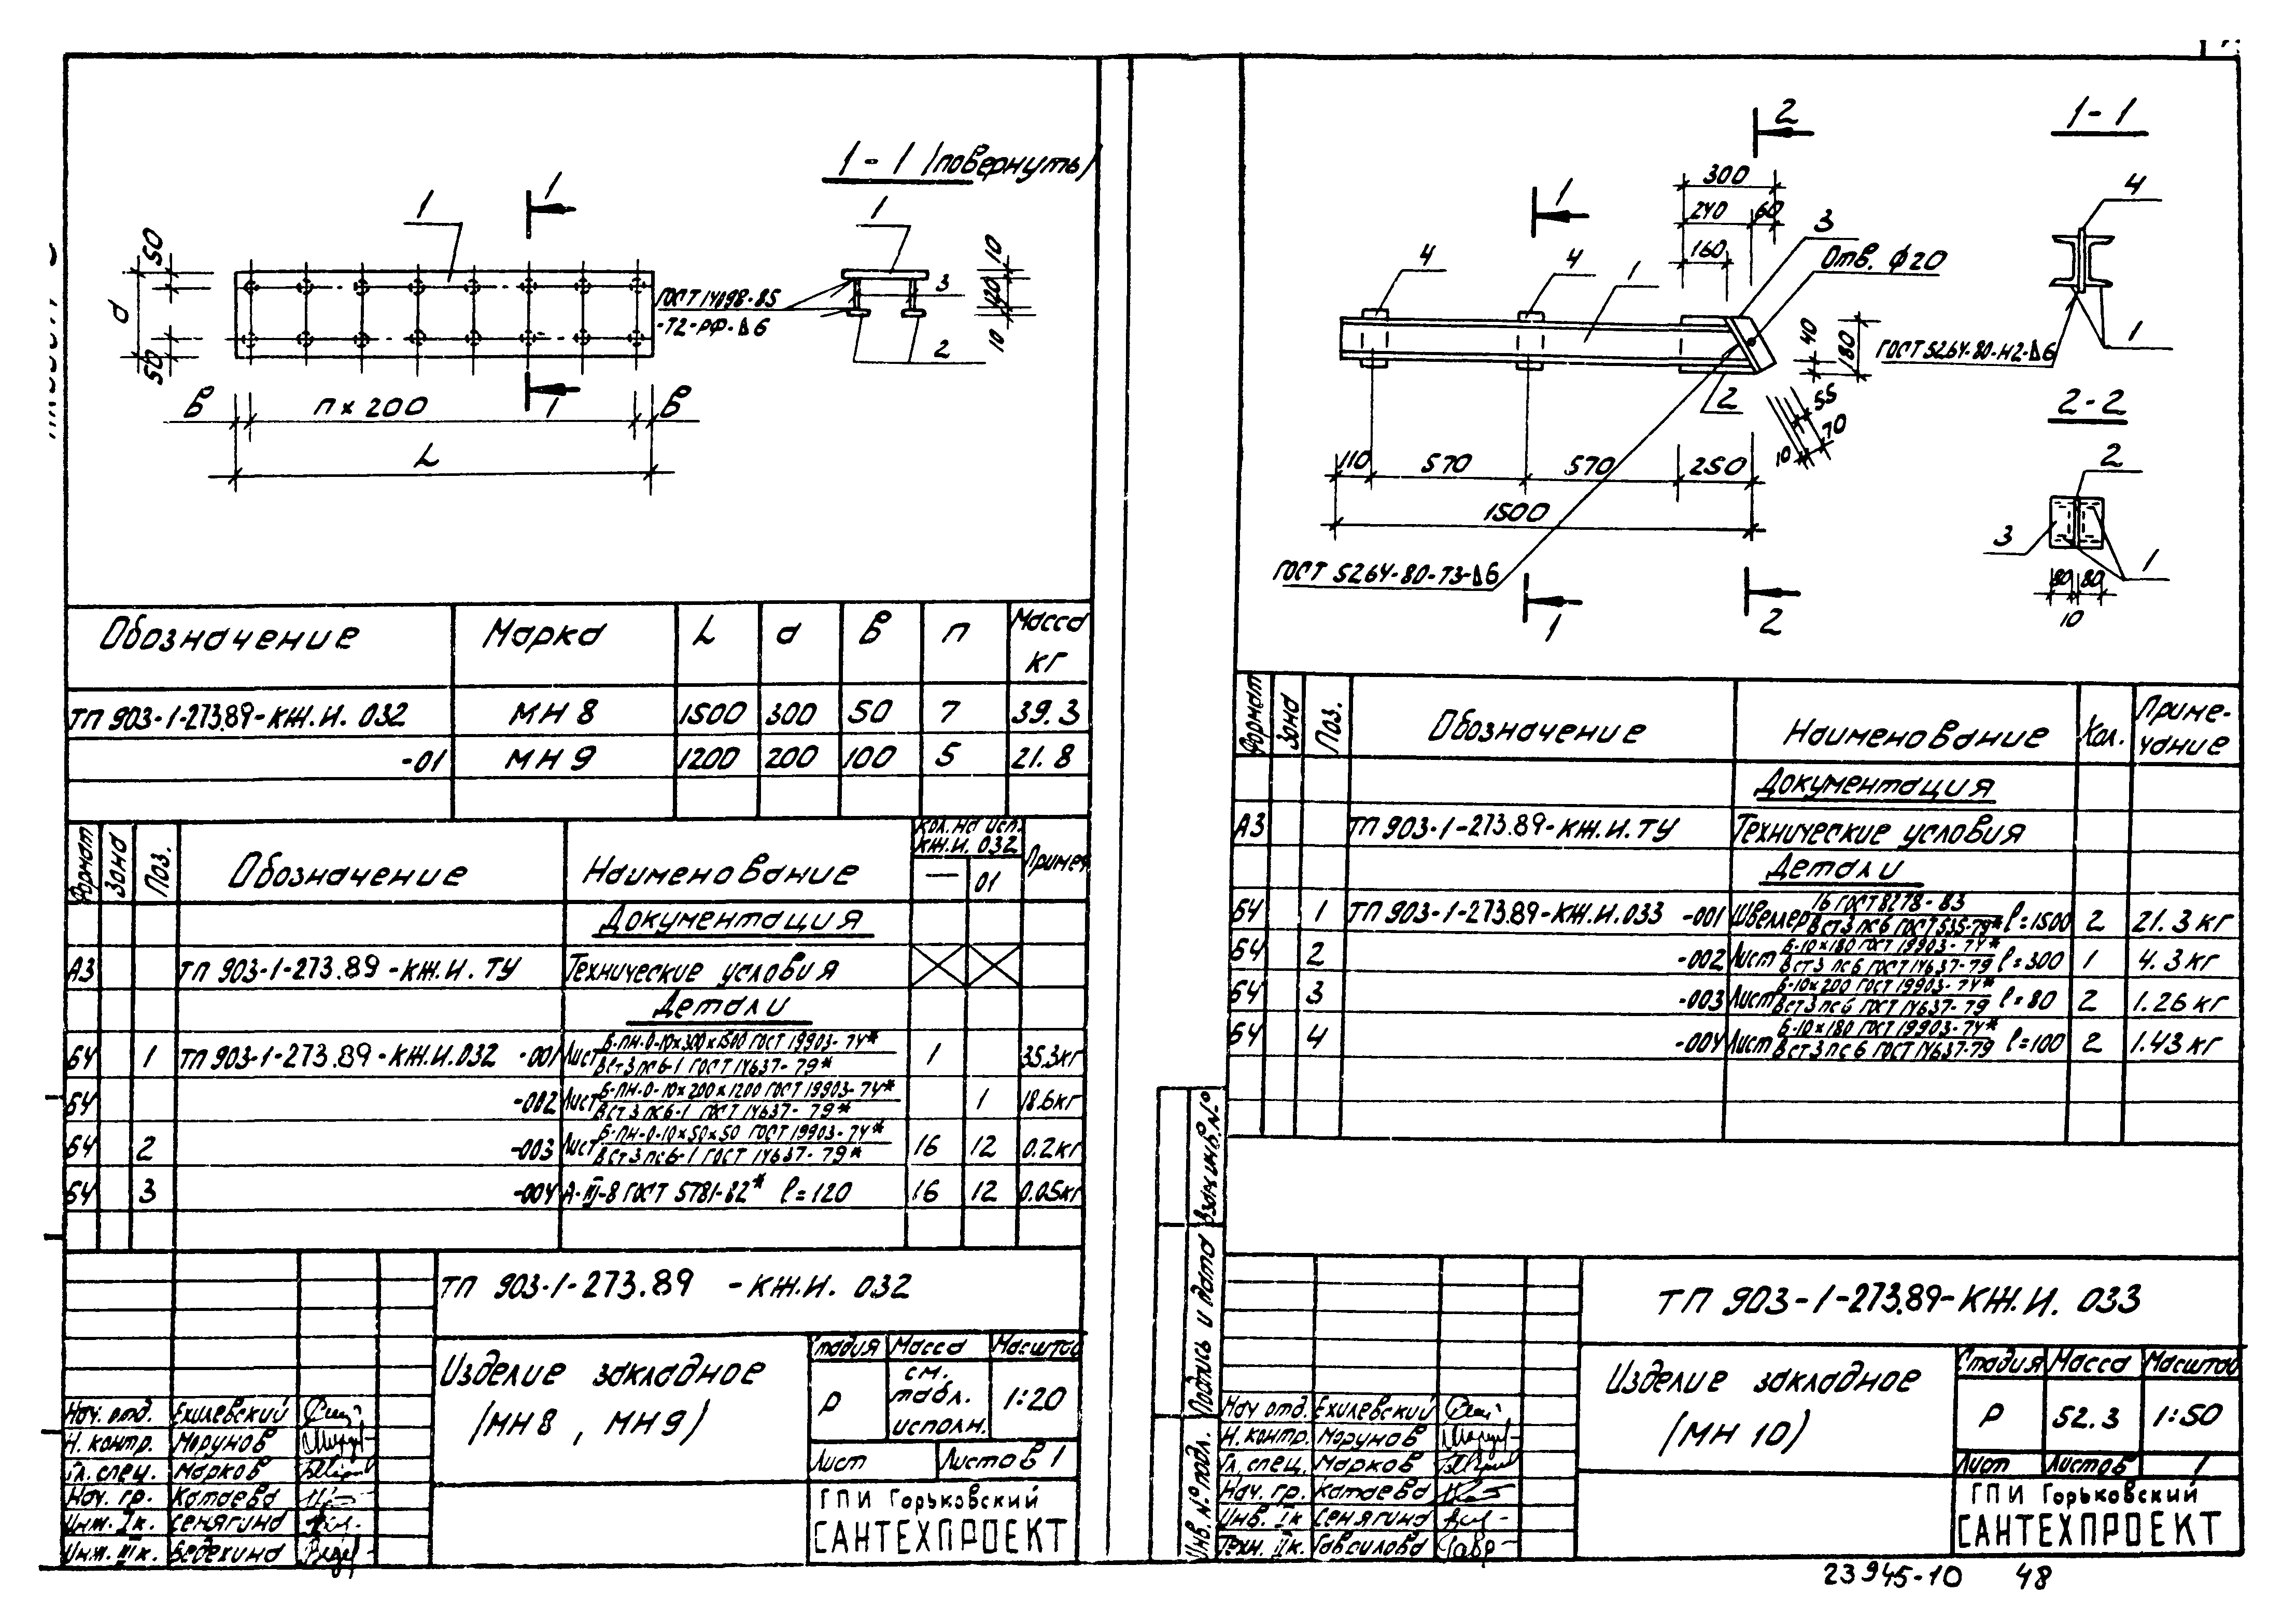 1-1 (повернуть)
1
1
1
50
d
50
ГОСТ 14098-85
-Т2-РФ-Δ6
3
2
10
120
10
в
n x 200
1
в
L
Обозначение Марка L d в n Масса кг
ТП 903-1-273.89-КЖ.И. 032 МН 8 1500 300 50 7 39.3
-01 МН 9 1200 200 100 5 21.8
Формат Зона Поз. Обозначение Наименование Кол. на исп. КЖ.И. 032 Примеч.
— 01
Документация
А3 ТП 903-1-273.89-КЖ.И. ТУ Технические условия
Детали
БЧ 1 ТП 903-1-273.89-КЖ.И.032 -001 Лист Б-ПН-О-10х300х1500 ГОСТ 19903-74* 1 35.3кг
ВСт3пс6-1 ГОСТ 14637-79*
БЧ -002 Лист Б-ПН-О-10х200х1200 ГОСТ 19903-74* 1 18.6кг
ВСт3пс6-1 ГОСТ 14637-79*
БЧ 2 -003 Лист Б-ПН-О-10х50х50 ГОСТ 19903-74* 16 12 0.2кг
ВСт3пс6-1 ГОСТ 14637-79*
БЧ 3 -004 А-III-8 ГОСТ 5781-82* ℓ=120 16 12 0.05кг
ТП 903-1-273.89 -КЖ.И. 032
Изделие закладное
(МН 8 , МН 9)
Стадия Масса Масштаб
Р см. табл. исполн. 1:20
Лист Листов 1
Нач. отд. Ехилевский
Н. контр. Морунов
Гл. спец. Марков
Нач. гр. Катаева
Инж. Iк. Сенягина
Инж. IIIк. Ведехина
ГПИ Горьковский
САНТЕХПРОЕКТ
2
1-1
300
240 60
160
1
4
4
1
3
Отв. ф20
4
40
180
ГОСТ 5264-80-Н2-Δ6
1
2
55
70
10
2-2
2
3
1
80 80
10
110 570 570 250
1500
ГОСТ 5264-80-Т3-Δ6
1
2
Формат Зона Поз. Обозначение Наименование Кол. Примечание
Документация
А3 ТП 903-1-273.89-КЖ.И.ТУ Технические условия
Детали
БЧ 1 ТП 903-1-273.89-КЖ.И.033 -001 Швеллер 16 ГОСТ 8278-83 ℓ=1500 2 21.3 кг
ВСт3пс6 ГОСТ 535-79*
БЧ 2 -002 Лист Б-10х180 ГОСТ 19903-74* ℓ=300 1 4.3 кг
ВСт3пс6 ГОСТ 14637-79
БЧ 3 -003 Лист Б-10х200 ГОСТ 19903-74* ℓ=80 2 1.26 кг
ВСт3пс6 ГОСТ 14637-79
БЧ 4 -004 Лист Б-10х180 ГОСТ 19903-74* ℓ=100 2 1.43 кг
ВСт3пс6 ГОСТ 14637-79
Взам инв. №
Подпись и дата
Инв. № подл.
ТП 903-1-273.89-КЖ.И. 033
Изделие закладное
(МН 10)
Стадия Масса Масштаб
Р 52.3 1:50
Лист Листов 1
Нач отд. Ехилевский
Н. контр. Морунов
Гл. спец. Марков
Нач. гр. Катаева
Инв. Iк Сенягина
Техн. IIк. Гавсилова
ГПИ Горьковский
САНТЕХПРОЕКТ
23945-10 48